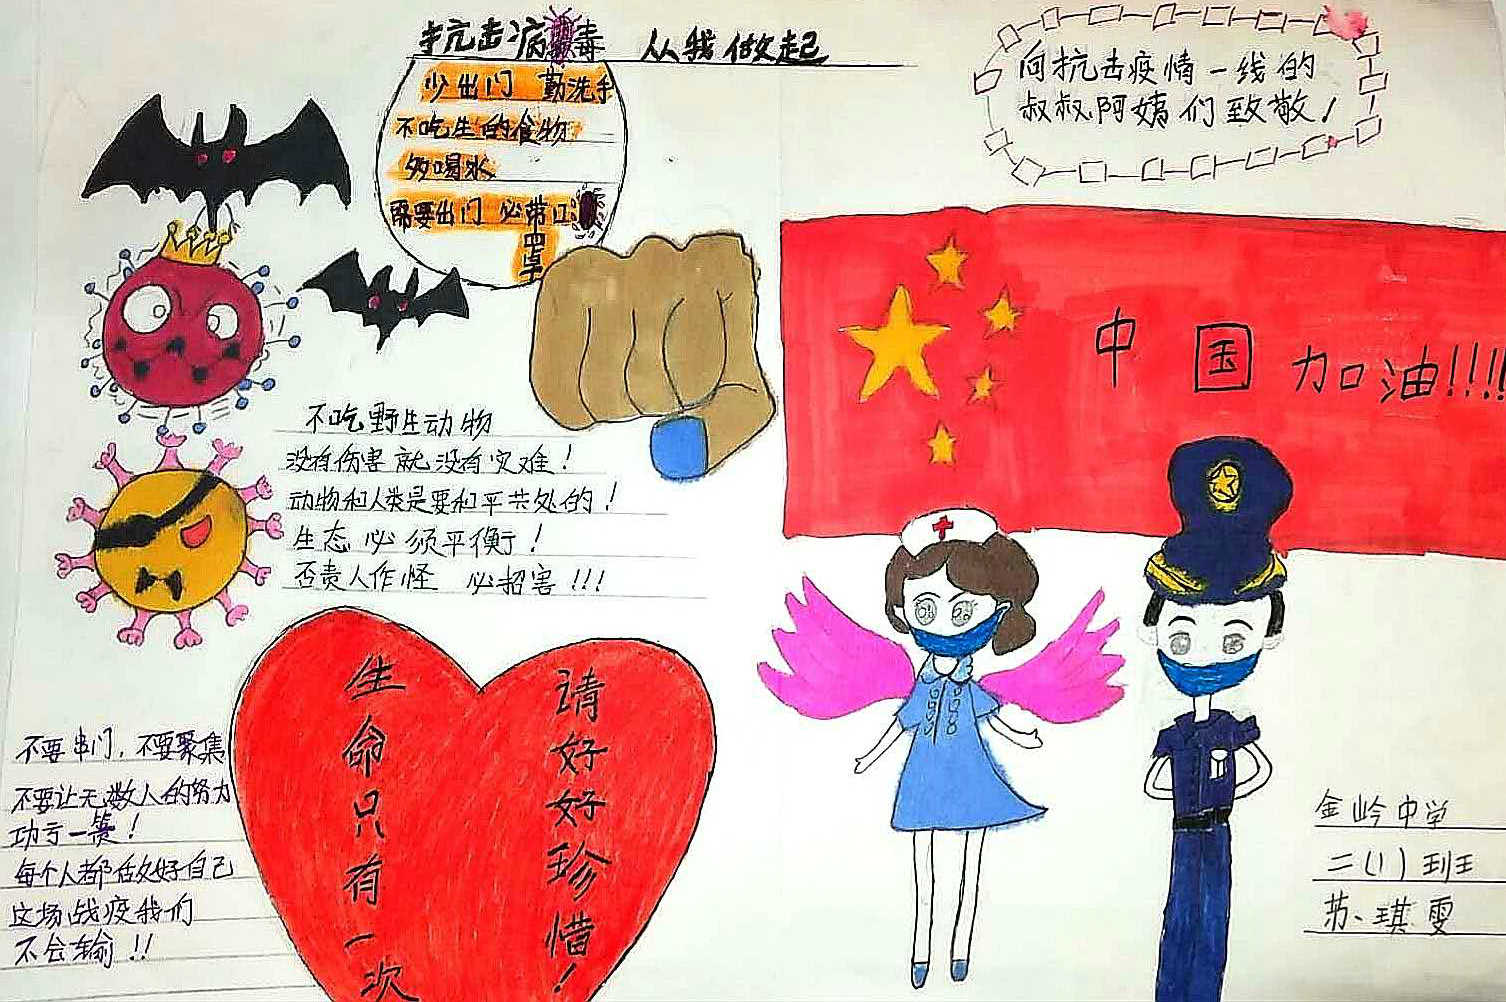 抗击病毒 从我做起
少出门 勤洗手
不吃生的食物
多喝水
需要出门 必带口罩
向抗击疫情一线的
叔叔阿姨们致敬!
中国加油!!!!
不吃野生动物
没有伤害就没有灾难!
动物和人类是要和平共处的!
生态必须平衡!
否责人作怪 必招害!!!
生命只有一次
请好好珍惜!
不要串门,不要聚集
不要让无数人的努力
功亏一篑!
每个人都做好自己
这场战疫我们
不会输!!
金岭中学
二(1)班
苏琪雯